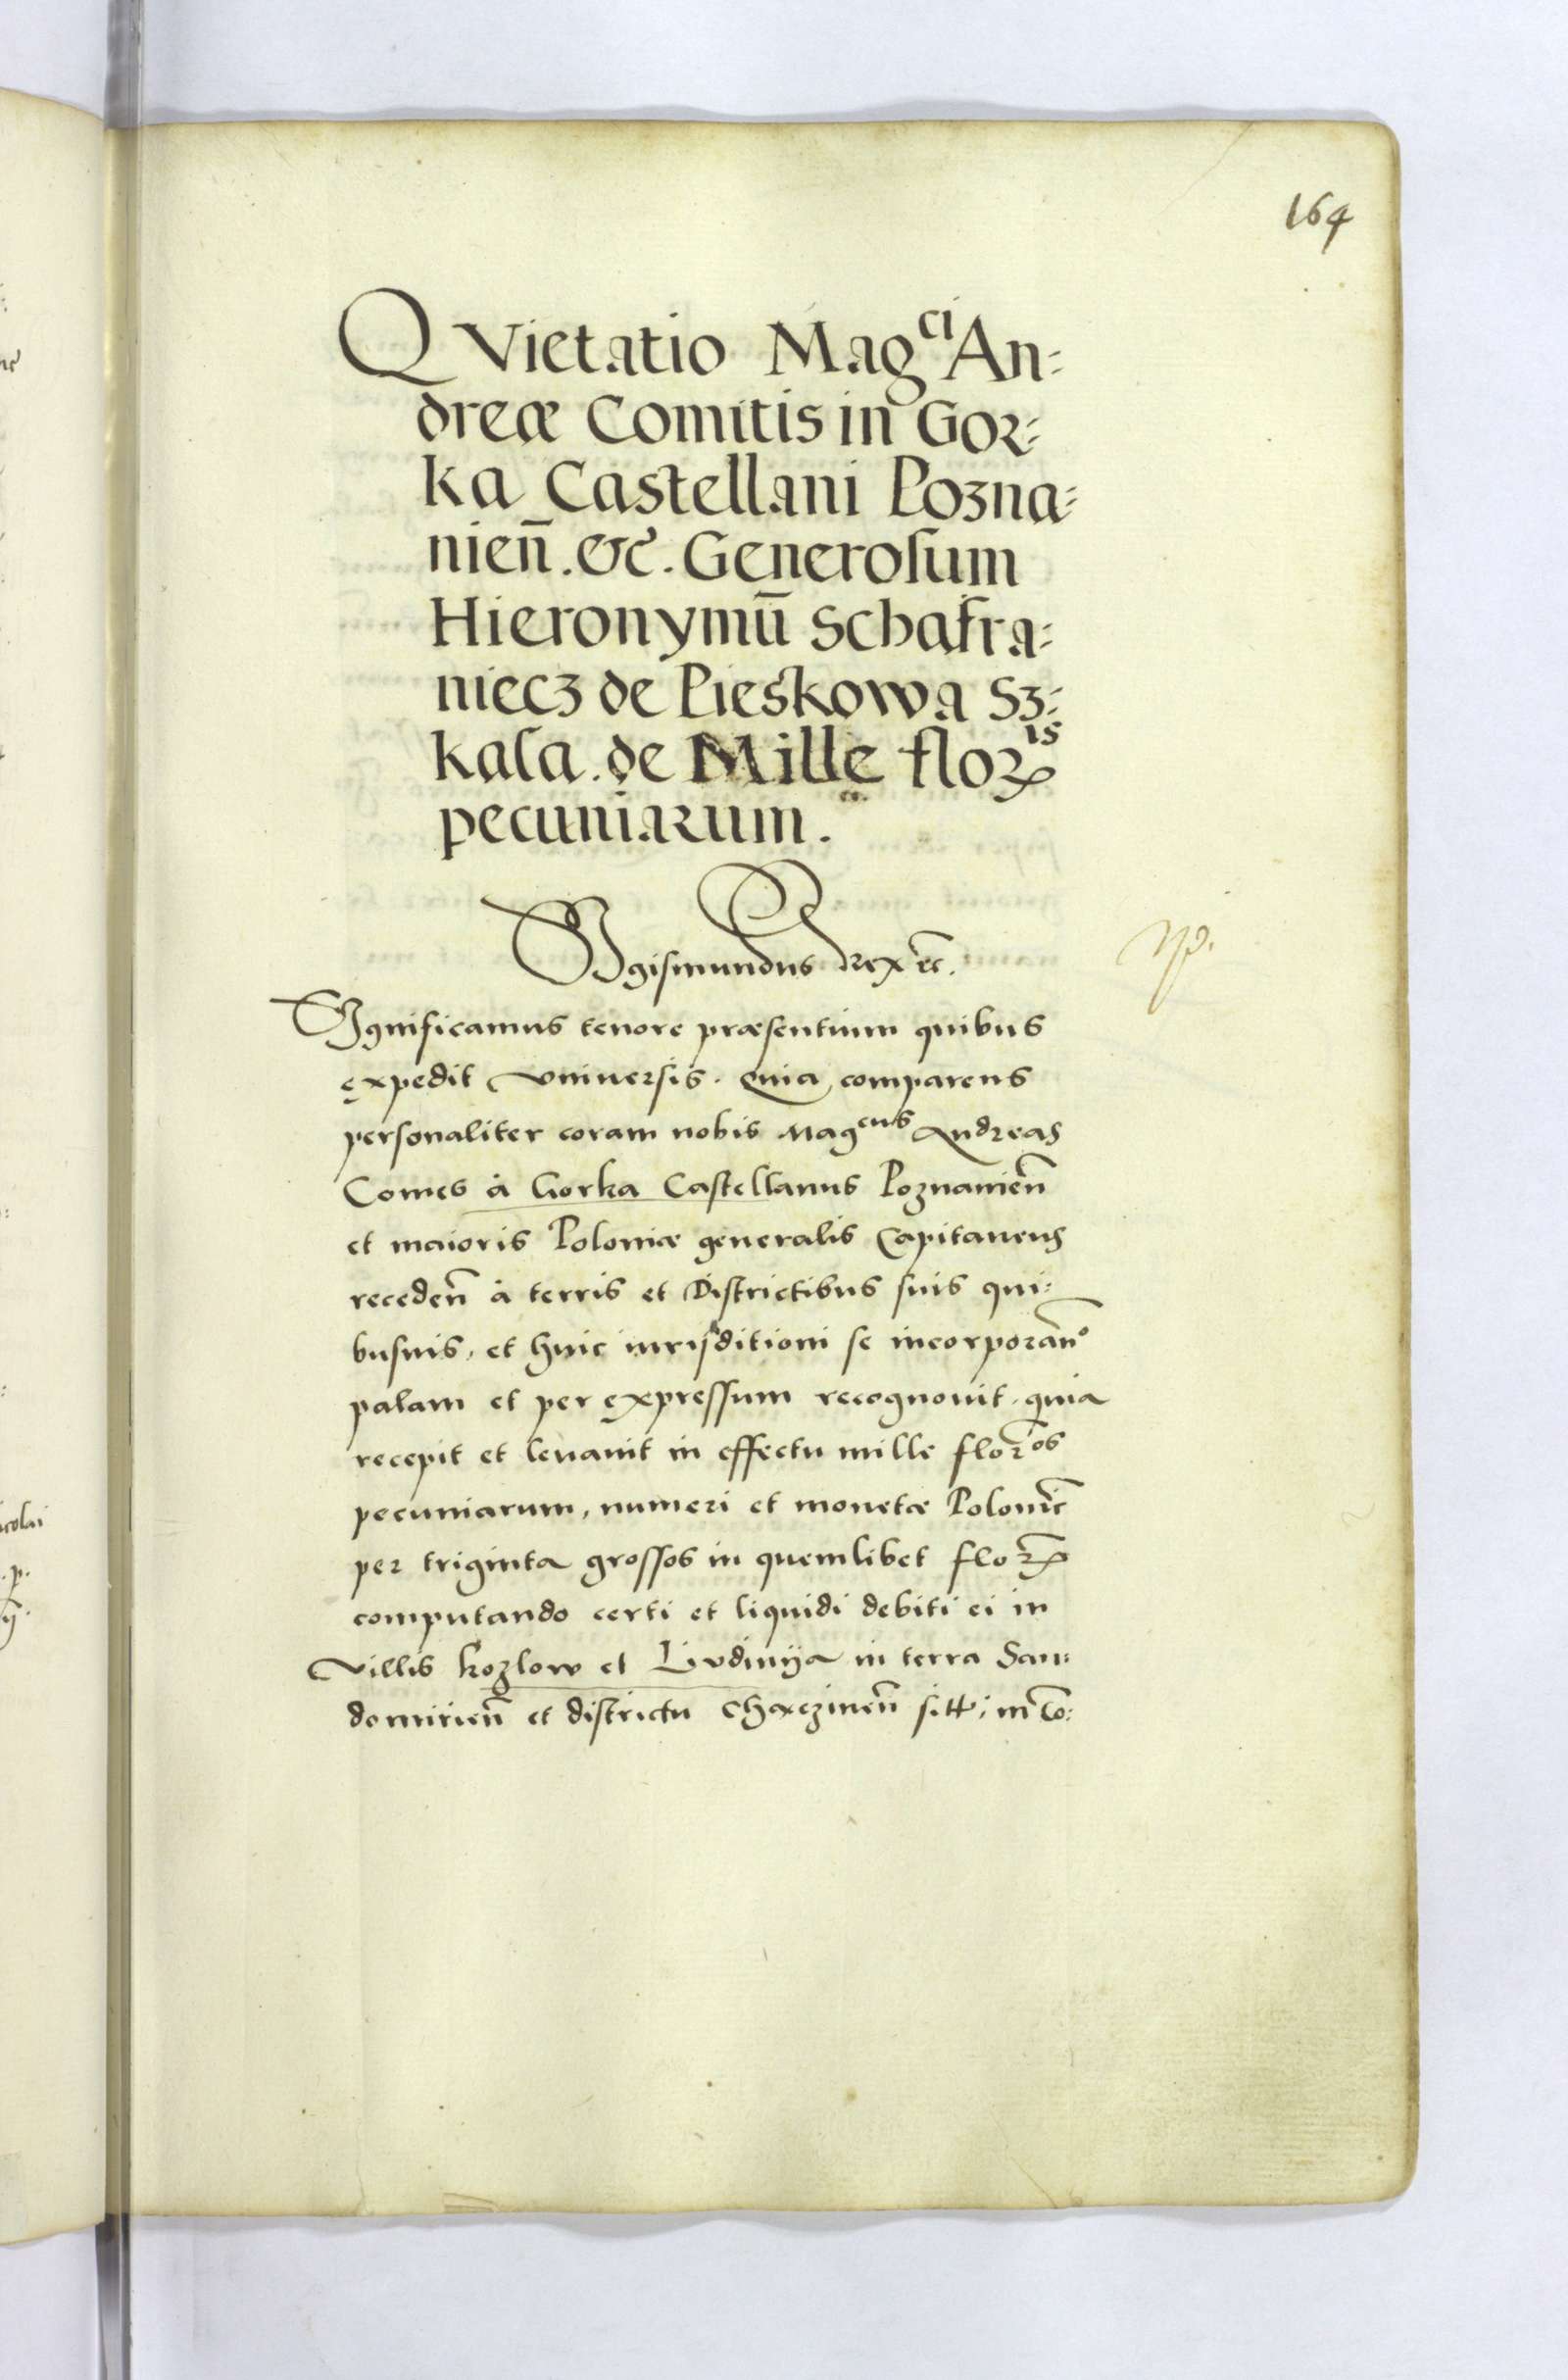 164
QVietatio Mag^ci An=
dreæ Comitis in Gor=
ka Castellani Pozna=
nien̄. &c. Generosum
Hieronymū Schafra=
niecz de Pieskowa Sz=
kala. de Mille flor^is
pecuniarum.
Sigismundus Rex etc.
Significamus tenore præsentium quibus
expedit vniuersis. Quia comparens
personaliter coram nobis Mag^cus Andreas
Comes à Gorka Castellanus Poznanien̄
et maioris Poloniæ generalis Capitaneus
receden̄ à terris et Districtibus suis qui=
busuis, et huic iurisditioni se incorporan̄°
palam et per expressum recognouit. quia
recepit et leuauit in effectu mille flor^os
pecuniarum, numeri et monetæ Polonic̄
per triginta grossos in quemlibet flor̄
computando certi et liquidi debiti ei in
villis Kozlow et Lvdinija in terra San=
domirien̄ et districtu Chæczinen̄ sitt. in Co=